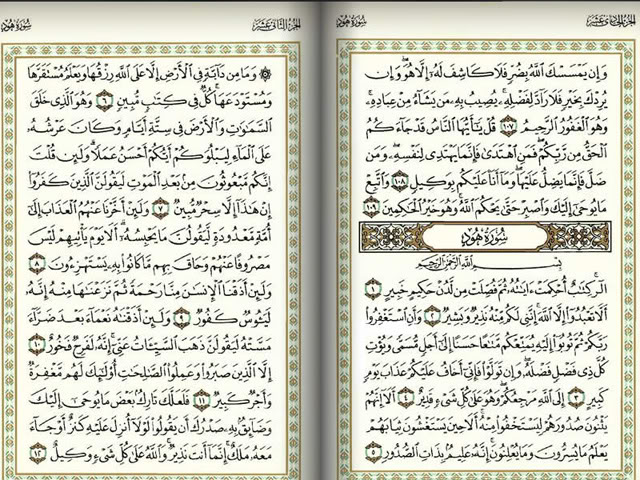 الجزء الحادي عشر
سورة هود
وَإِن يَمْسَسْكَ ٱللَّهُ بِضُرٍّ فَلَا كَاشِفَ لَهُۥٓ إِلَّا هُوَ ۖ وَإِن
يُرِدْكَ بِخَيْرٍ فَلَا رَآدَّ لِفَضْلِهِۦ ۚ يُصِيبُ بِهِۦ مَن يَشَآءُ مِنْ عِبَادِهِۦ ۚ
وَهُوَ ٱلْغَفُورُ ٱلرَّحِيمُ ١٠٧ قُلْ يَٰٓأَيُّهَا ٱلنَّاسُ قَدْ جَآءَكُمُ
ٱلْحَقُّ مِن رَّبِّكُمْ ۖ فَمَنِ ٱهْتَدَىٰ فَإِنَّمَا يَهْتَدِى لِنَفْسِهِۦ ۖ وَمَن
ضَلَّ فَإِنَّمَا يَضِلُّ عَلَيْهَا ۖ وَمَآ أَنَا۠ عَلَيْكُم بِوَكِيلٍ ١٠٨ وَٱتَّبِعْ
مَا يُوحَىٰٓ إِلَيْكَ وَٱصْبِرْ حَتَّىٰ يَحْكُمَ ٱللَّهُ ۚ وَهُوَ خَيْرُ ٱلْحَٰكِمِينَ ١٠٩
سُورَةُ هُودٍ
بِسْمِ ٱللَّهِ ٱلرَّحْمَٰنِ ٱلرَّحِيمِ
الٓر ۚ كِتَٰبٌ أُحْكِمَتْ ءَايَٰتُهُۥ ثُمَّ فُصِّلَتْ مِن لَّدُنْ حَكِيمٍ خَبِيرٍ ١
أَلَّا تَعْبُدُوٓا۟ إِلَّا ٱللَّهَ ۚ إِنَّنِى لَكُم مِّنْهُ نَذِيرٌ وَبَشِيرٌ ٢ وَأَنِ ٱسْتَغْفِرُوا۟
رَبَّكُمْ ثُمَّ تُوبُوٓا۟ إِلَيْهِ يُمَتِّعْكُم مَّتَٰعًا حَسَنًا إِلَىٰٓ أَجَلٍ مُّسَمًّى وَيُؤْتِ
كُلَّ ذِى فَضْلٍ فَضْلَهُۥ ۖ وَإِن تَوَلَّوْا۟ فَإِنِّىٓ أَخَافُ عَلَيْكُمْ عَذَابَ يَوْمٍ
كَبِيرٍ ٣ إِلَى ٱللَّهِ مَرْجِعُكُمْ ۖ وَهُوَ عَلَىٰ كُلِّ شَىْءٍ قَدِيرٌ ٤ أَلَآ إِنَّهُمْ
يَثْنُونَ صُدُورَهُمْ لِيَسْتَخْفُوا۟ مِنْهُ ۚ أَلَا حِينَ يَسْتَغْشُونَ ثِيَابَهُمْ
يَعْلَمُ مَا يُسِرُّونَ وَمَا يُعْلِنُونَ ۚ إِنَّهُۥ عَلِيمٌۢ بِذَاتِ ٱلصُّدُورِ ٥
الجزء الثاني عشر
سورة هود
۞ وَمَا مِن دَآبَّةٍ فِى ٱلْأَرْضِ إِلَّا عَلَى ٱللَّهِ رِزْقُهَا وَيَعْلَمُ مُسْتَقَرَّهَا
وَمُسْتَوْدَعَهَا ۚ كُلٌّ فِى كِتَٰبٍ مُّبِينٍ ٦ وَهُوَ ٱلَّذِى خَلَقَ
ٱلسَّمَٰوَٰتِ وَٱلْأَرْضَ فِى سِتَّةِ أَيَّامٍ وَكَانَ عَرْشُهُۥ
عَلَى ٱلْمَآءِ لِيَبْلُوَكُمْ أَيُّكُمْ أَحْسَنُ عَمَلًا ۗ وَلَئِن قُلْتَ
إِنَّكُم مَّبْعُوثُونَ مِنۢ بَعْدِ ٱلْمَوْتِ لَيَقُولَنَّ ٱلَّذِينَ كَفَرُوٓا۟
إِنْ هَٰذَآ إِلَّا سِحْرٌ مُّبِينٌ ٧ وَلَئِنْ أَخَّرْنَا عَنْهُمُ ٱلْعَذَابَ إِلَىٰٓ
أُمَّةٍ مَّعْدُودَةٍ لَّيَقُولُنَّ مَا يَحْبِسُهُۥٓ ۗ أَلَا يَوْمَ يَأْتِيهِمْ لَيْسَ
مَصْرُوفًا عَنْهُمْ وَحَاقَ بِهِم مَّا كَانُوا۟ بِهِۦ يَسْتَهْزِءُونَ ٨
وَلَئِنْ أَذَقْنَا ٱلْإِنسَٰنَ مِنَّا رَحْمَةً ثُمَّ نَزَعْنَٰهَا مِنْهُ إِنَّهُۥ
لَيَـُٔوسٌ كَفُورٌ ٩ وَلَئِنْ أَذَقْنَٰهُ نَعْمَآءَ بَعْدَ ضَرَّآءَ
مَسَّتْهُ لَيَقُولَنَّ ذَهَبَ ٱلسَّيِّـَٔاتُ عَنِّىٓ ۚ إِنَّهُۥ لَفَرِحٌ فَخُورٌ ١٠
إِلَّا ٱلَّذِينَ صَبَرُوا۟ وَعَمِلُوا۟ ٱلصَّٰلِحَٰتِ أُو۟لَٰٓئِكَ لَهُم مَّغْفِرَةٌ
وَأَجْرٌ كَبِيرٌ ١١ فَلَعَلَّكَ تَارِكٌۢ بَعْضَ مَا يُوحَىٰٓ إِلَيْكَ
وَضَآئِقٌۢ بِهِۦ صَدْرُكَ أَن يَقُولُوا۟ لَوْلَآ أُنزِلَ عَلَيْهِ كَنزٌ أَوْ جَآءَ
مَعَهُۥ مَلَكٌ ۚ إِنَّمَآ أَنتَ نَذِيرٌ ۚ وَٱللَّهُ عَلَىٰ كُلِّ شَىْءٍ وَكِيلٌ ١٢